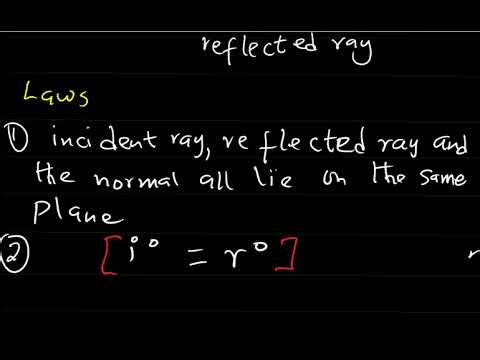 reflected ray
Laws
① incident ray, reflected ray and
the normal all lie on the same
plane
② [i° = r°]